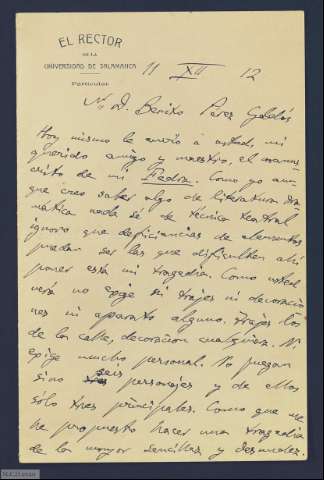 EL RECTOR
DE LA
UNIVERSIDAD DE SALAMANCA
Particular
11 XII 12
Sr. D. Benito Perez Galdós
Hoy mismo le envío a usted, mi
querido amigo y maestro, el manus
crito de mi Fedra. Como yo aun
que creo saber algo de literatura dra
mática nada sé de técnica teatral
ignoro que deficiencias de elementos
puedan ser las que dificulten ahí
poner esta mi tragedia. Como usted
verá no exige ni trajes ni decoracio
nes ni aparato alguno. Trajes los
de la calle, decoracion cualquiera. Ni
exige mucho personal. No juegan
sino seis personajes y de ellos
sólo tres principales. Como que me
he propuesto hacer una tragedia
de la mayor sencillez y desnudez.